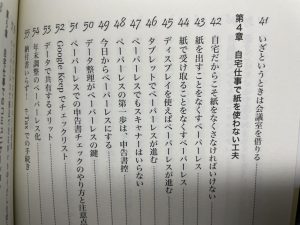 41 いざというときは会議室を借りる
第4章 自宅仕事で紙を使わない工夫
42 自宅だからこそ紙をなくさなければいけない
43 紙を出すことをなくすペーパーレス
44 紙で受け取ることをなくすペーパーレス
45 ディスプレイを使えばペーパーレスが進む
46 タブレットでペーパーレスが進む
47 ペーパーレスでもスキャナーはいらない
48 ペーパーレスの第一歩は、申告書控
49 今日からペーパーレスにする
50 データ整理がペーパーレスの鍵
51 ペーパーレスでの申告書チェックのやり方と注意点
52 Google Keepでチェックリスト
53 データで共有するメリット
54 年末調整のペーパーレス化
55 納付書いらず！ e-Taxでの手続き